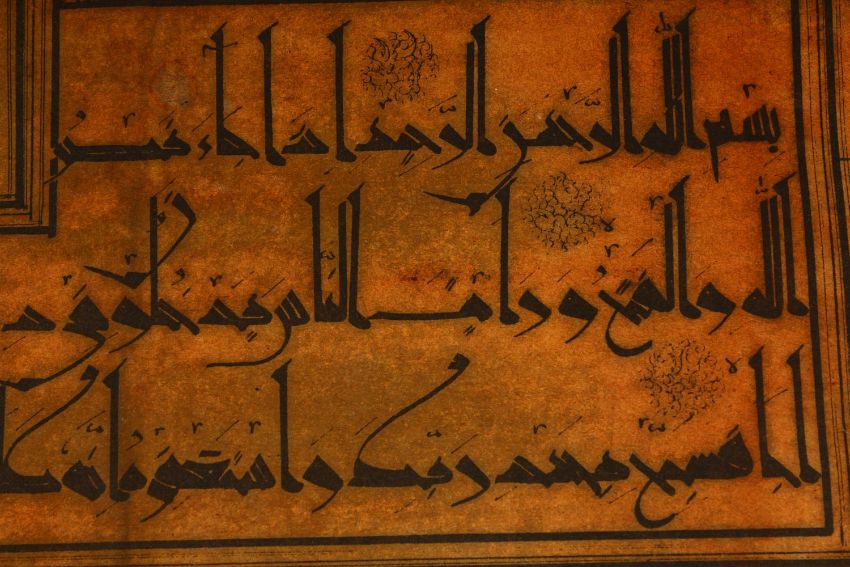 بِسْمِ اللَّهِ الرَّحْمَنِ الرَّحِيمِ إِذَا جَاءَ نَصْرُ
اللَّهِ وَالْفَتْحُ وَرَأَيْتَ النَّاسَ يَدْخُلُونَ فِي دِ
اجًا فَسَبِّحْ بِحَمْدِ رَبِّكَ وَاسْتَغْفِرْهُ إِنَّهُ كَا